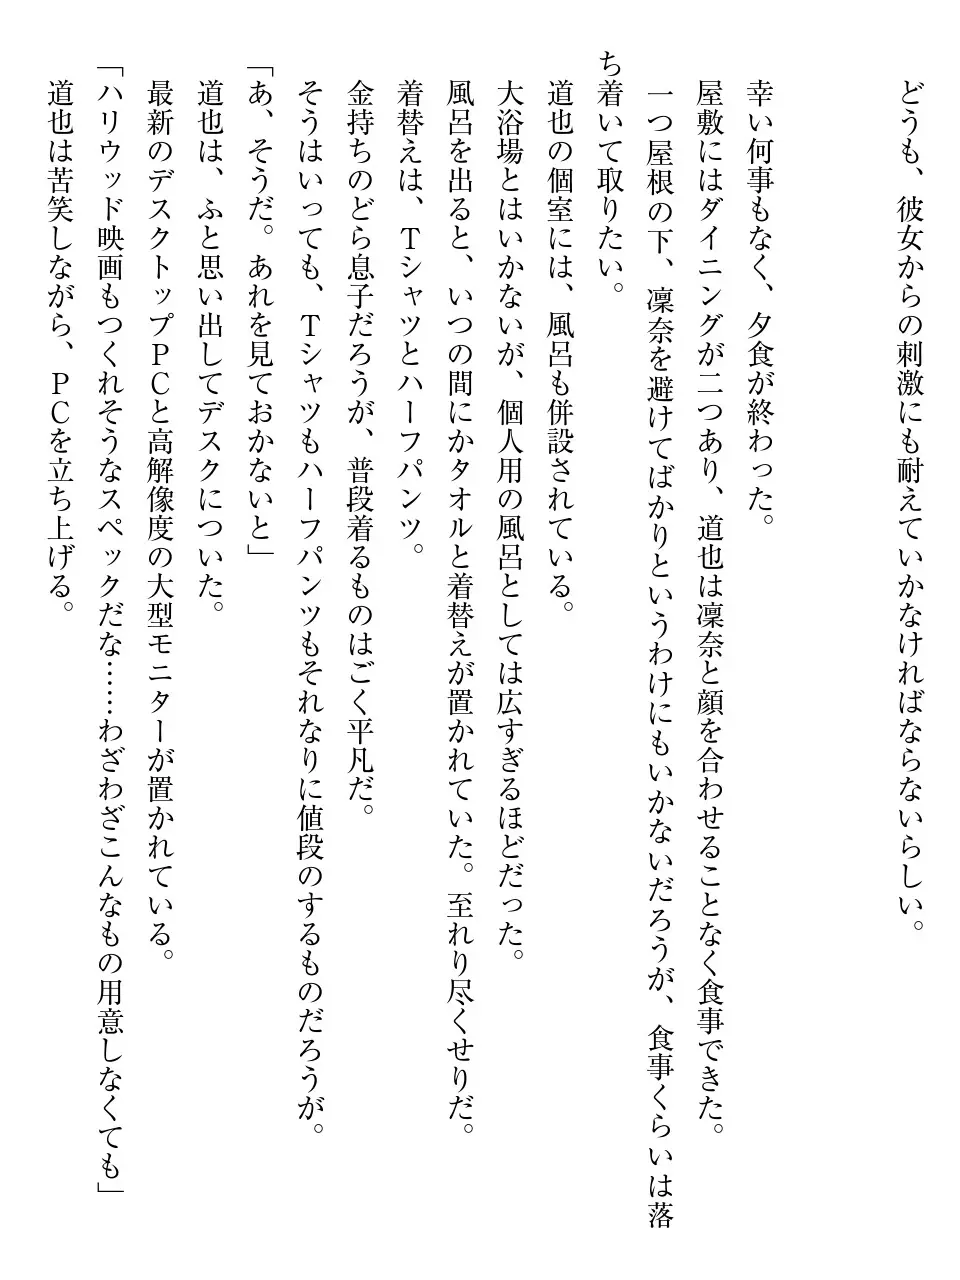 どうも、彼女からの刺激にも耐えていかなければならないらしい。
幸い何事もなく、夕食が終わった。
屋敷にはダイニングが二つあり、道也は凜奈と顔を合わせることなく食事できた。
一つ屋根の下、凜奈を避けてばかりというわけにもいかないだろうが、食事くらいは落
ち着いて取りたい。
道也の個室には、風呂も併設されている。
大浴場とはいかないが、個人用の風呂としては広すぎるほどだった。
風呂を出ると、いつの間にかタオルと着替えが置かれていた。至れり尽くせりだ。
着替えは、Ｔシャツとハーフパンツ。
金持ちのどら息子だろうが、普段着るものはごく平凡だ。
そうはいっても、Ｔシャツもハーフパンツもそれなりに値段のするものだろうが。
「あ、そうだ。あれを見ておかないと」
道也は、ふと思い出してデスクについた。
最新のデスクトップＰＣと高解像度の大型モニターが置かれている。
「ハリウッド映画もつくれそうなスペックだな……わざわざこんなもの用意しなくても」
道也は苦笑しながら、ＰＣを立ち上げる。